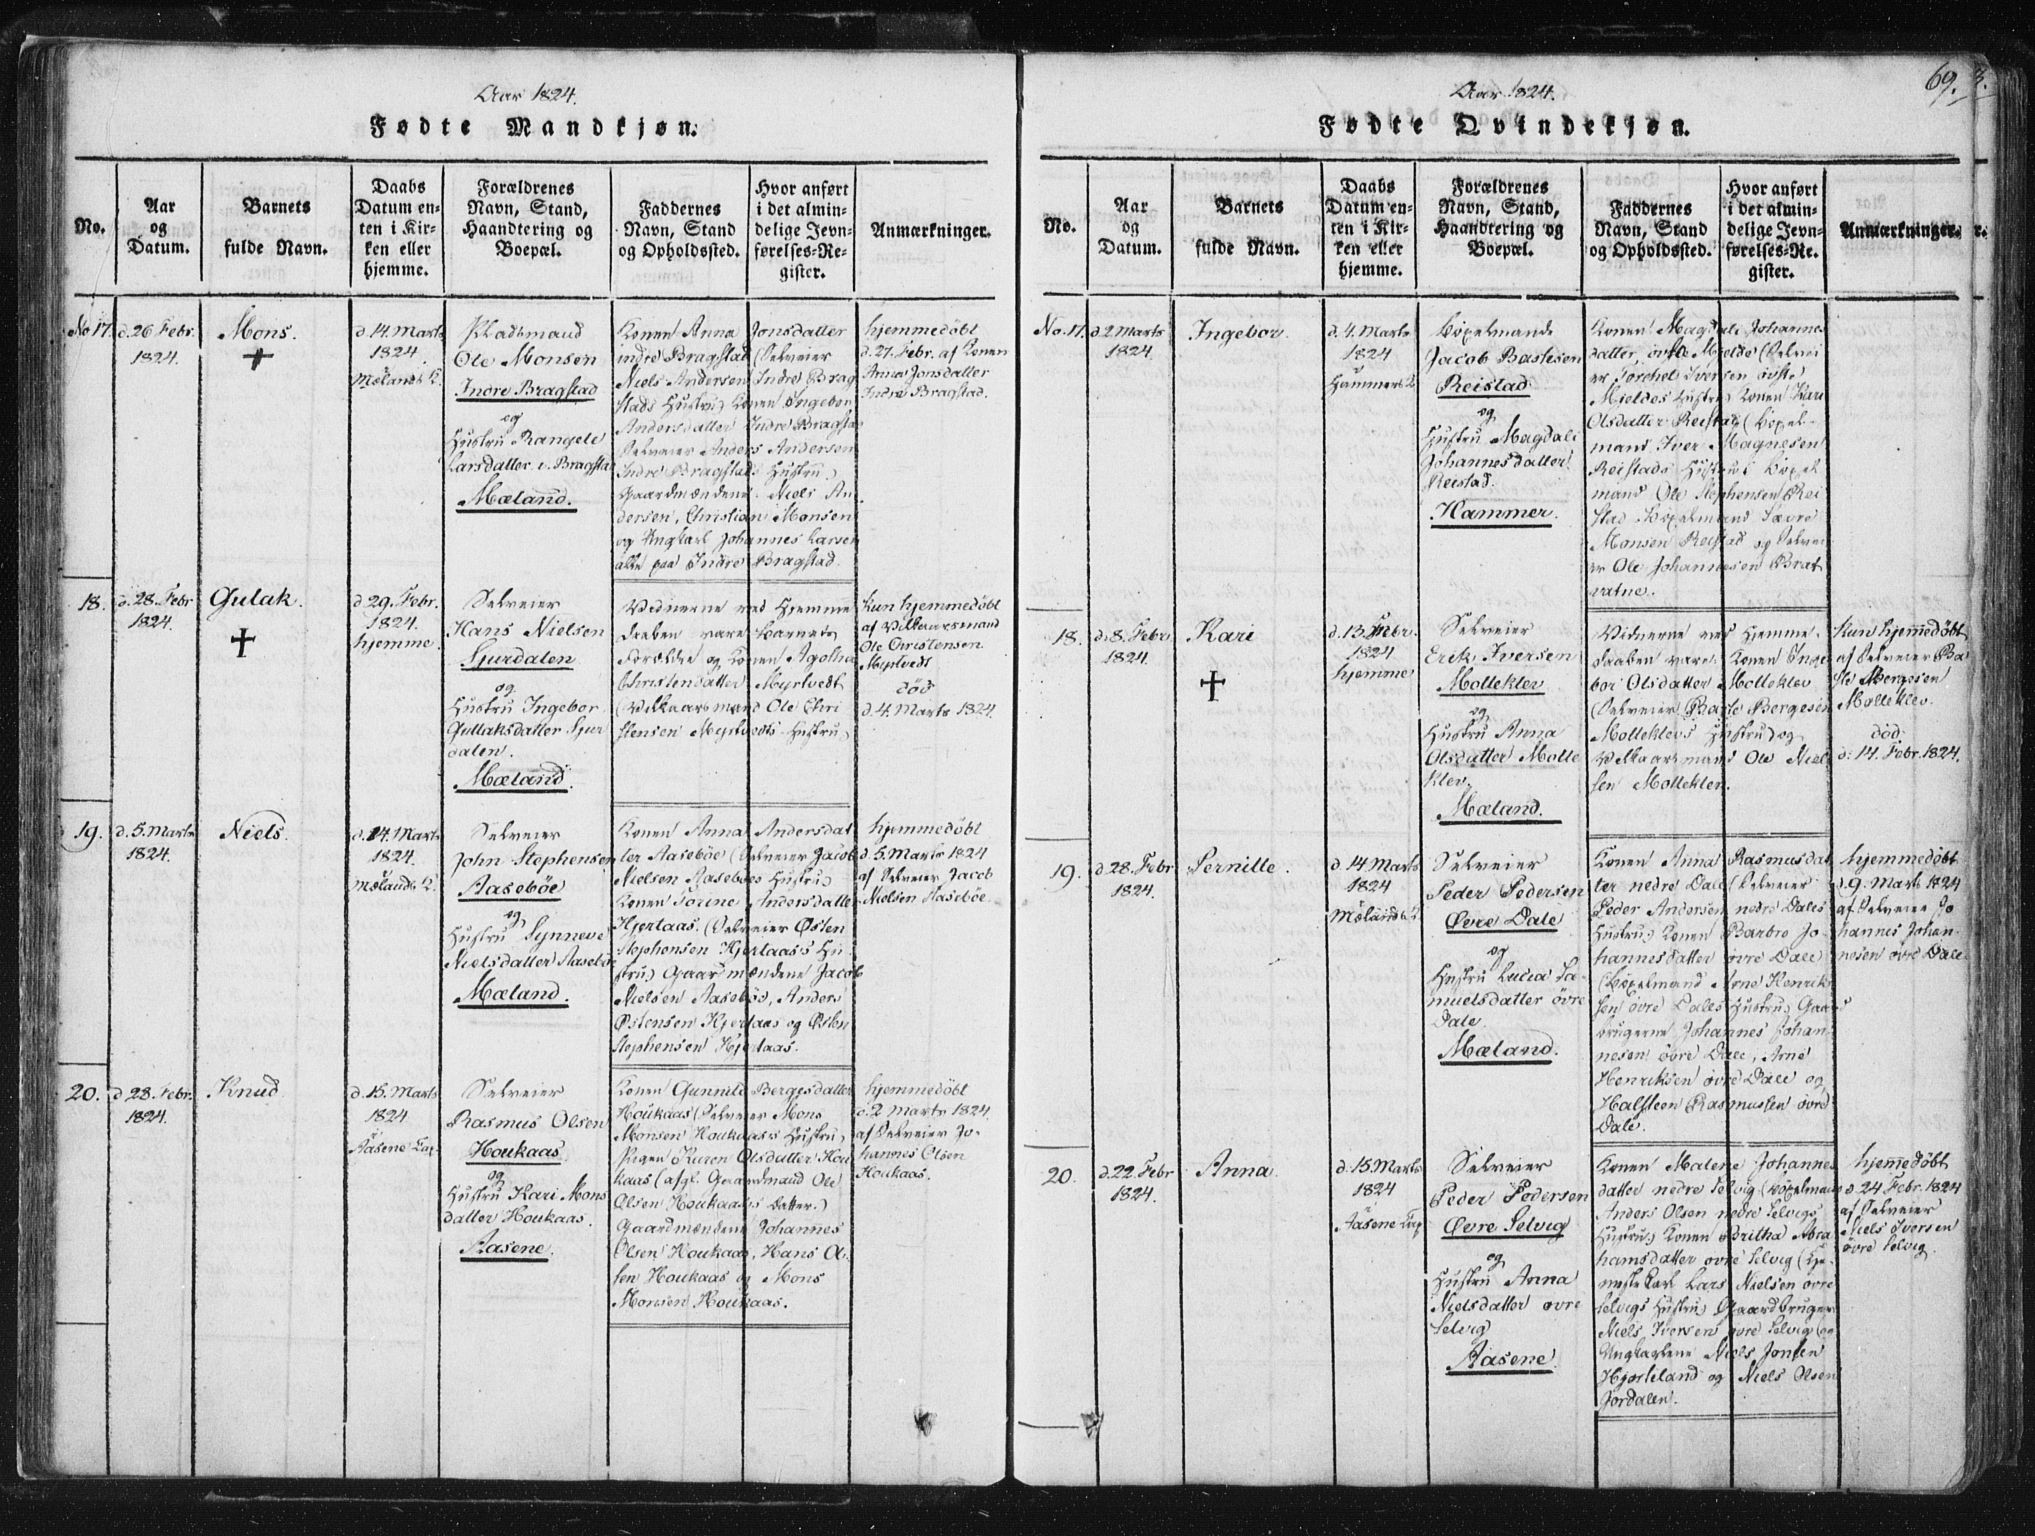 Aar 1824.
Fødte Mandkjøn.
No.
Aar
og
Datum.
Barnets
fulde Navn.
Daabs
Datum en-
ten i Kir-
ken eller
hjemme.
Forældrenes
Navn, Stand,
Haandtering og
Boepæl.
Faddernes
Navn, Stand
og Opholdssted.
Hvor anført
i det almin-
delige Jevn-
førelses-Re-
gister.
Anmærkninger.
No 17.
d. 26 Febr.
1824.
Mons.
d. 14. Marts
1824.
Mælands K.
Pladsmand
Ole Monsen
Indre Bragstad
og
Hustru Rangele
Larsdatter i. Bragstad
Mæland.
Konen Anna Jonsdatter
indre Bragstad (Selveier
Niels Andersen Indre Brag
stads Hustru) Konen Ingebor
Andersdatter Indre Bragstad
Selveier Anders Andersen
Indre Bragstads Hustru)
Gaardmændene Niels An
dersen, Christian Monsen
og Ungkarl Johannes Larsen
alle paa Indre Bragstad.
hjemmedøbt
d. 27. Febr. af Konen
Anna Jonsdatter
Indre Bragstad.
18.
d. 28. Febr
1824.
Gulak.
d 29. Febr.
1824.
hjemme.
Selveier
Hans Nielsen
Sjurdalen
og
Hustru Ingebor
Gullaksdatter Sjur
dalen.
Mæland.
Vidnerne ved Hjemme
daaben vare Barnets
Forældre og Konen Agatha
Christensdatter Myrtvedt
(Vilkaarsmand Ole Chri
stensen Myrtvedts Hustru)
Kun hjemmedøbt
af Vilkaarsmand
Ole Christensen
Myrtvedt
død
d. 4. Marts 1824.
19.
d. 5. Marts
1824.
Niels.
d. 14. Marts
1824.
Mælands K.
Selveier
John Stephensen
Aasebøe
og
Hustru Synneve
Nielsdatter Aasebøe
Mæland.
Konen Anna Andersdat
ter Aasebøe (Selveier Jacob
Nielsen Aasebøes Hustru)
Konen Torine Andersdatter
Hjertaas. (Selveier Østen
Stephensen Hjertaas's Hu
stru) Gaardmændene Jacob
Nielsen Aasebøe, Anders
Østensen Hjertaas og Østen
Stephensen Hjertaas.
hjemmedøbt
d. 5. Marts 1824
af Selveier Jacob
Nielsen Aasebøe.
20.
d 28. Febr.
1824.
Knud
d. 15. Marts
1824
Aasene Cap.
Selveier
Rasmus Olsen
Houkaas
og
Hustru Kari Mons
datter Houkaas.
Aasene.
Konen Gunnild Bergesdatter
Houkaas (Selveier Mons
Monsen Houkaas's Hustru)
Pigen Karen Olsdatter Hou
kaas (afgl. Gaardmand Ole
Olsen Houkaas's Datter.)
Gaardmændene Johannes
Olsen Houkaas, Hans Ol
sen Houkaas og Mons
Monsen Houkaas.
hjemmedøbt
d. 2 Marts 1824.
af Selveier Jo-
hannes Olsen
Houkaas.
69.
Aar 1824.
Fødte Qvindekjøn.
No.
Aar
og
Datum.
Barnets
fulde Navn.
Daabs
Datum en-
ten i Kir-
ken eller
hjemme.
Forældrenes
Navn, Stand,
Haandtering og
Boepæl.
Faddernes
Navn, Stand
og Opholdssted.
Hvor anført
i det almin-
delige Jevn-
førelses-Re-
gister.
Anmærkninger.
No. 17.
d 2 Marts
1824.
Ingebor.
d. 4. Marts
1824
Hammers K
Bøxelmand
Jacob Bastesen
Reistad
og
Hustru Magdali
Johannesdatter
Reistad.
Hammer.
Konen Magdali Johannes
datter, øvste Mjelde (Selvei
er Torchel Iversen øvste
Mjeldes Hustru) Konen Kari
Olsdatter Reistad (Bøxel-
mand Iver Magnesen
Reistads Hustru) Bøxel
mand Ole Stephensen Rei
stad Bøxelmand Sævre
Monsen Reistad og Selvei
er Ole Johannesen Brat
vatne.
18.
d. 8. Febr.
1824.
Kari
d. 13 Febr.
1824
hjemme
Selveier
Erik Iversen
Molleklev
og
Hustru Anna
Olsdatter Molle
klev.
Mæland.
Vidnerne ved Hjemme-
daaben vare Konen Inge
bor Olsdatter Molleklev
(Selveier Baste Bergesen
Molleklevs Hustru) og
Vilkaarsmand Ole Niel
sen Molleklev.
Kun hjemmedøbt
af Selveier Ba
ste Bergesen
Molleklev.
død
d. 14. Febr. 1824.
19.
d. 28. Febr
1824.
Pernille.
d. 14 Marts
1824
Mælands K.
Selveier
Peder Pedersen
Øvre Dale
og
Hustru Lucia Sa-
muelsdatter øvre
Dale.
Mæland.
Konen Anna Rasmusdat
ter nedre Dale (Selveier
Peder Andersen nedre Dales
Hustru) Konen Barbro Jo-
hannesdatter øvre Dale
(Bøxelmand Arne Henrik
sen øvre Dales Hustru) Gaard
brugerne Johannes Johan-
nesen øvre Dale, Arne
Henriksen øvre Dale og
Halsteen Rasmussen øvre
Dale.
hjemmedøbt
d. 9. Marts 1824
af Selveier Jo
hannes Johan-
nesen øvre Dale
20.
d. 22. Febr
1824.
Anna.
d. 15. Marts
1824
Aasene Cap
Selveier
Peder Pedersen
Øvre Selvig
og
Hustru Anna
Nielsdatter øvre
Selvig
Aasene.
Konen Malene Johannes
datter nedre Selvig (Bøxelmand
Anders Olsen nedre Selvigs
Hustru) Konen Britha Abra
hamsdatter øvre Selvig (Tje-
neste Karl Lars Nielsen øvre
Selvigs Hustru) Gaardbruger
Niels Iversen øvre Selvig og
Ungkarlene Niels Jonsen
Hjorteland og Niels Olsen
Jordalen.
hjemmedøbt
d 24 Febr. 1824
af Selveier
Niels Iversen
øvre Selvig.